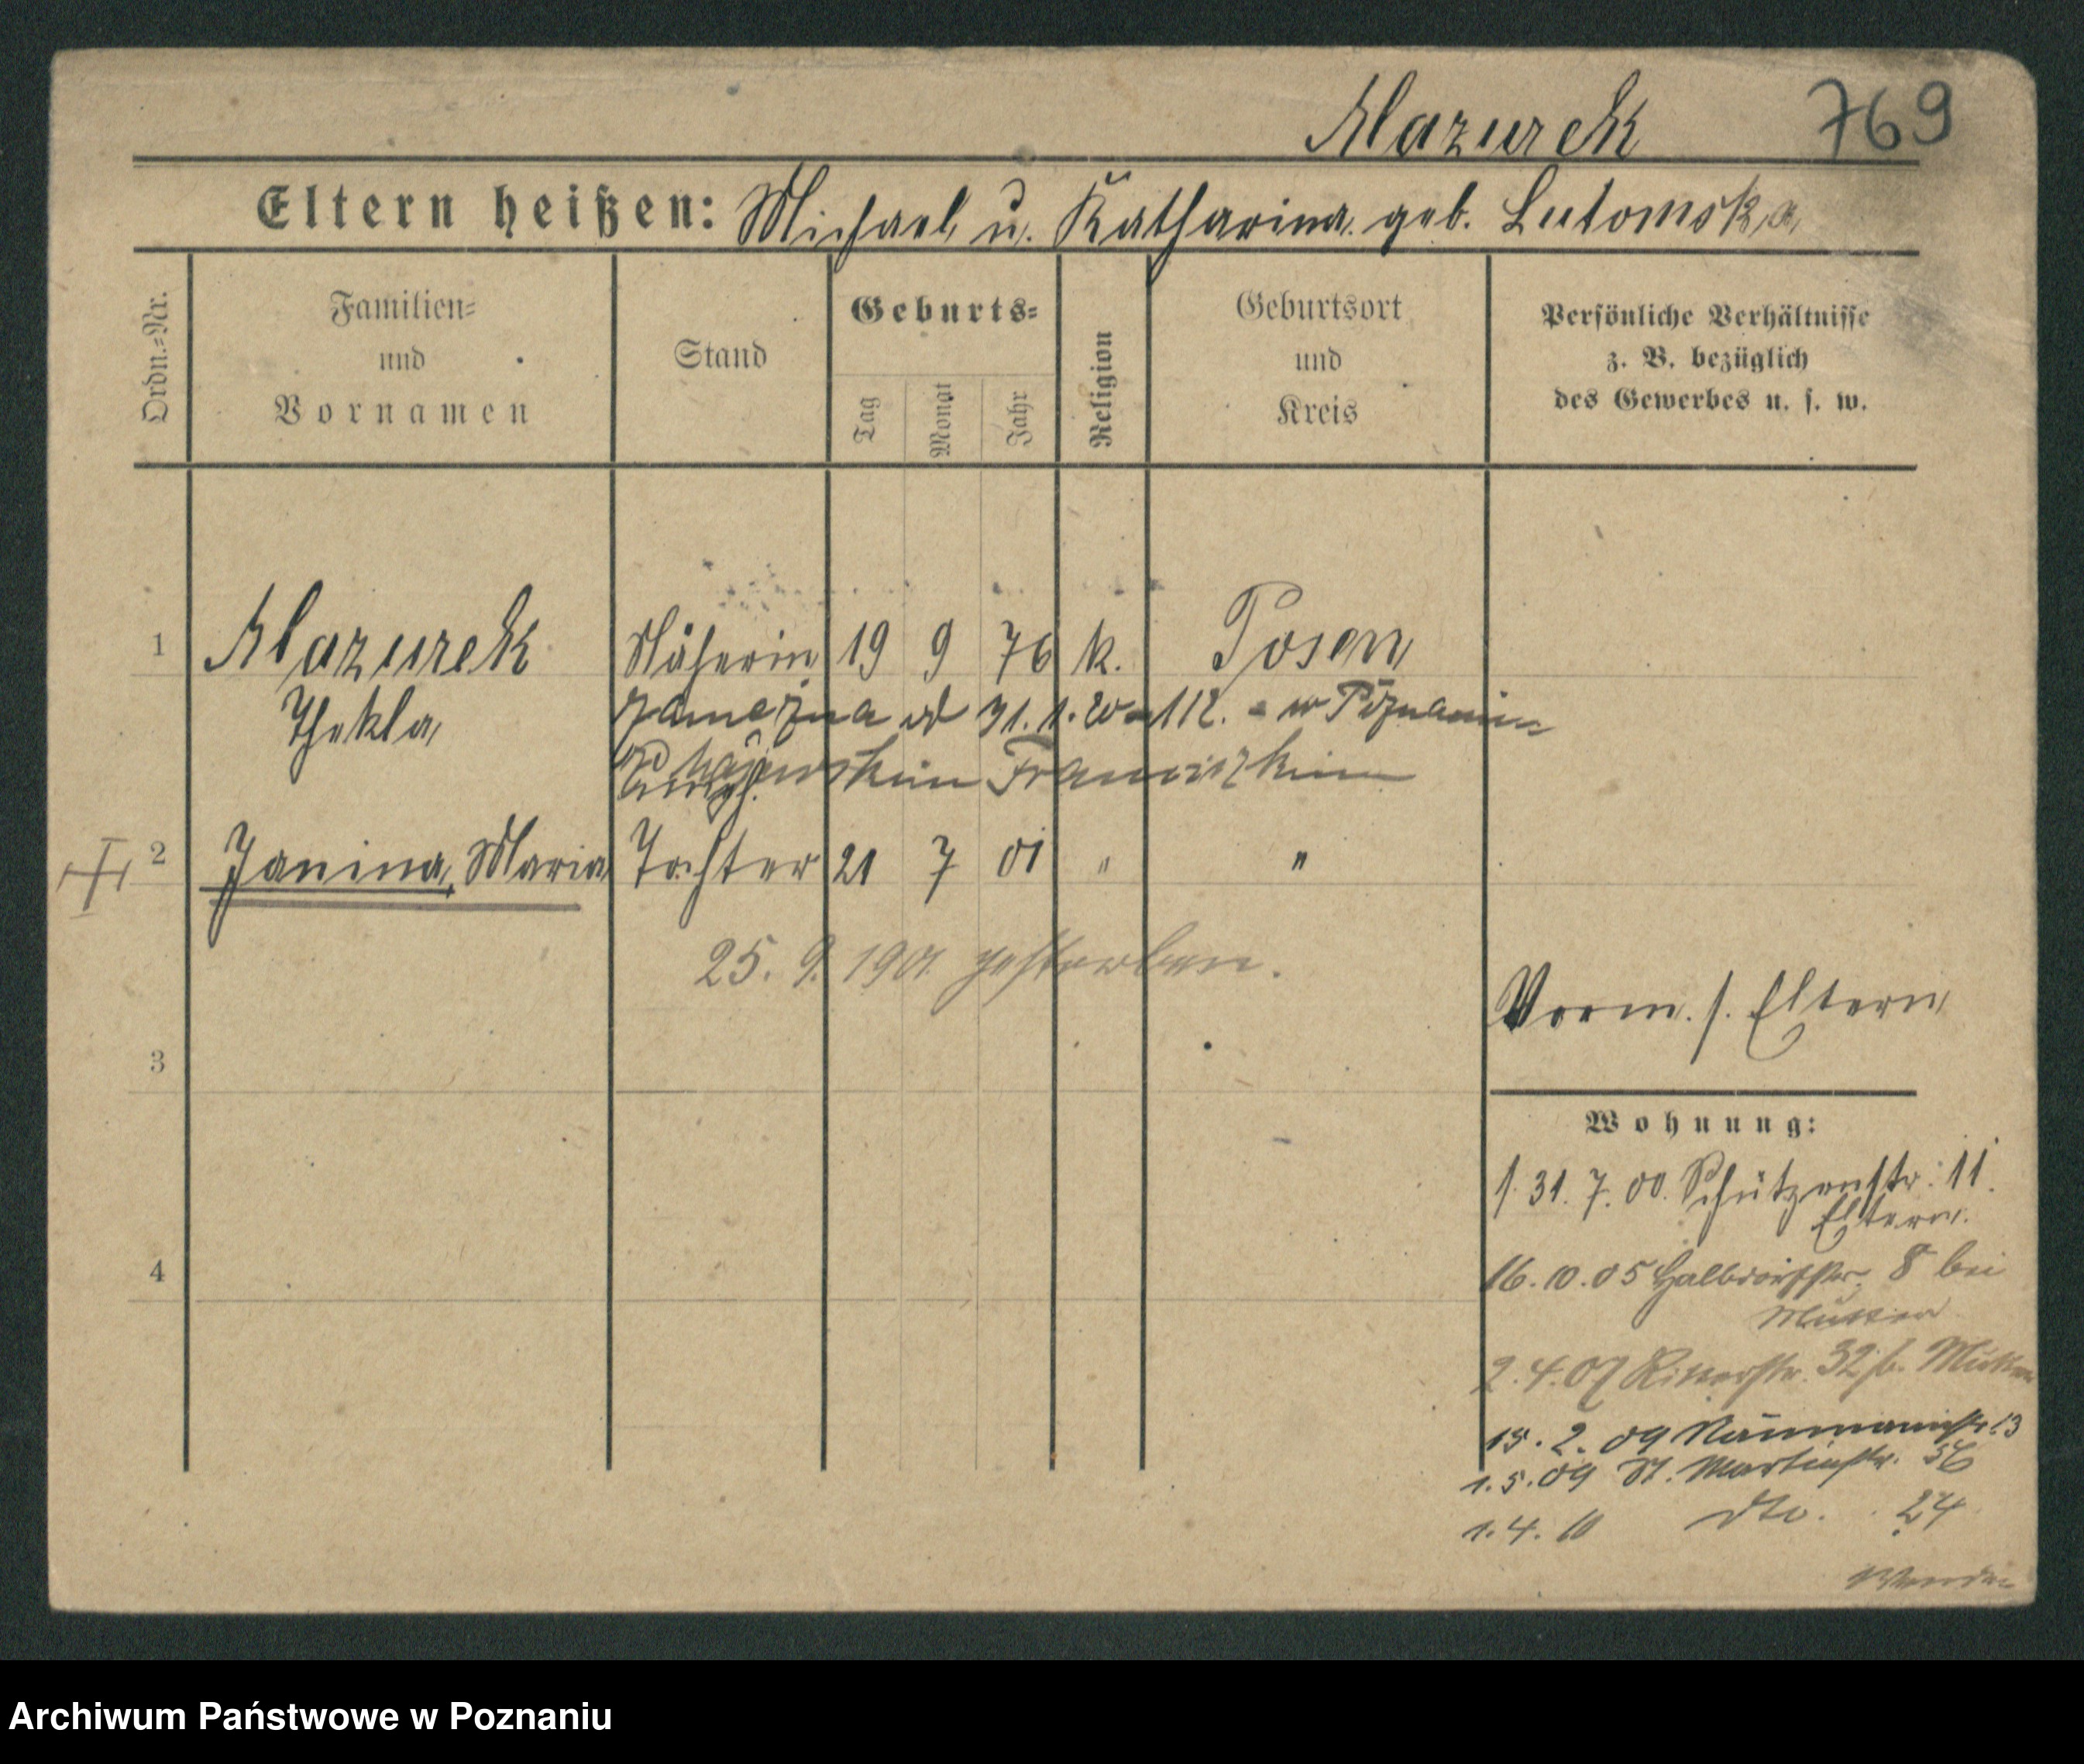 Mazurek 769
Eltern heißen: Michael u. Katharina geb. Lutomska
Ordn.=Nr.
Familien=
und
Vornamen
Stand
Geburts=
Tag
Monat
Jahr
Religion
Geburtsort
und
Kreis
Persönliche Verhältnisse
z. B. bezüglich
des Gewerbes u. s. w.
1 Mazurek Näherin 19 9 76 k. Posen
Thekla
zamężna od 31.1.20 w Poznaniu
Franciszkiem
2 Janina, Maria Tochter 21 7 01 " "
25. 9. 1901 gestorben.
Vorm. s. Eltern
3
Wohnung:
31. 7. 00. Schützenstr. 11.
Eltern.
4
16. 10. 05 Halbdorfstr. 8 bei
Mutter
2. 4. 07 Ritterstr. 32 b. Mutter
15. 2. 09 Naumannstr. 13
1. 5. 09 St. Martinstr. 56
1. 4. 10 dto. 24
Wenden
Archiwum Państwowe w Poznaniu